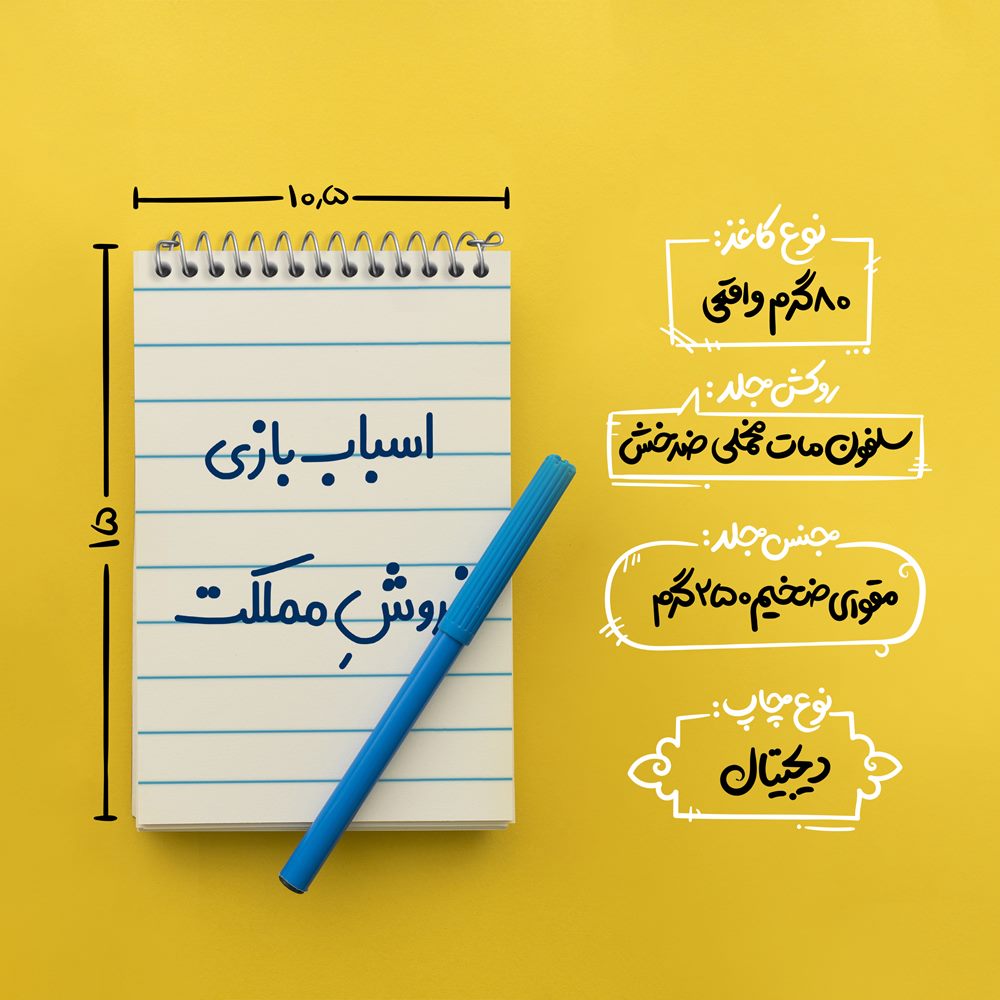 ۱۰٫۵
۱۵
اسباب بازی
فروشِ مملکت
نوع کاغذ:
۸۰گرم واقعی
روکش جلد:
سلفون مات مخملی ضدخش
جنس جلد:
مقوای ضخیم ۲۵۰ گرم
نوع چاپ:
دیجیتال